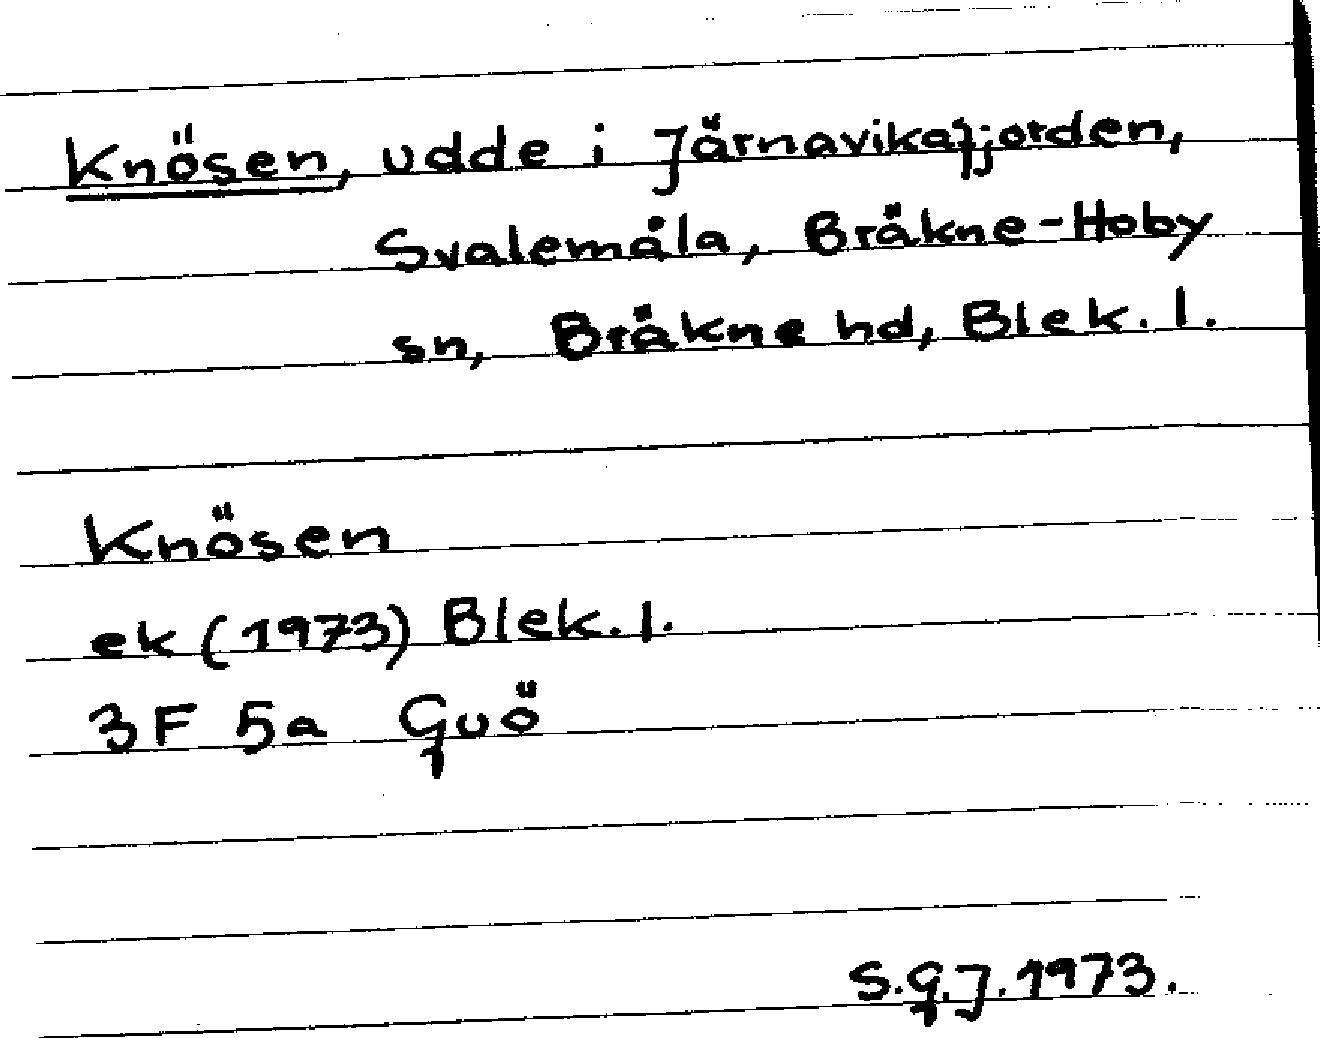 Knösen, udde i Järnavikafjorden,
Svalemåla, Bräkne-Hoby
sn, Bräkne hd, Blek. l.
Knösen
ek (1973) Blek. l.
3F 5a Guö
S.G.J. 1973.